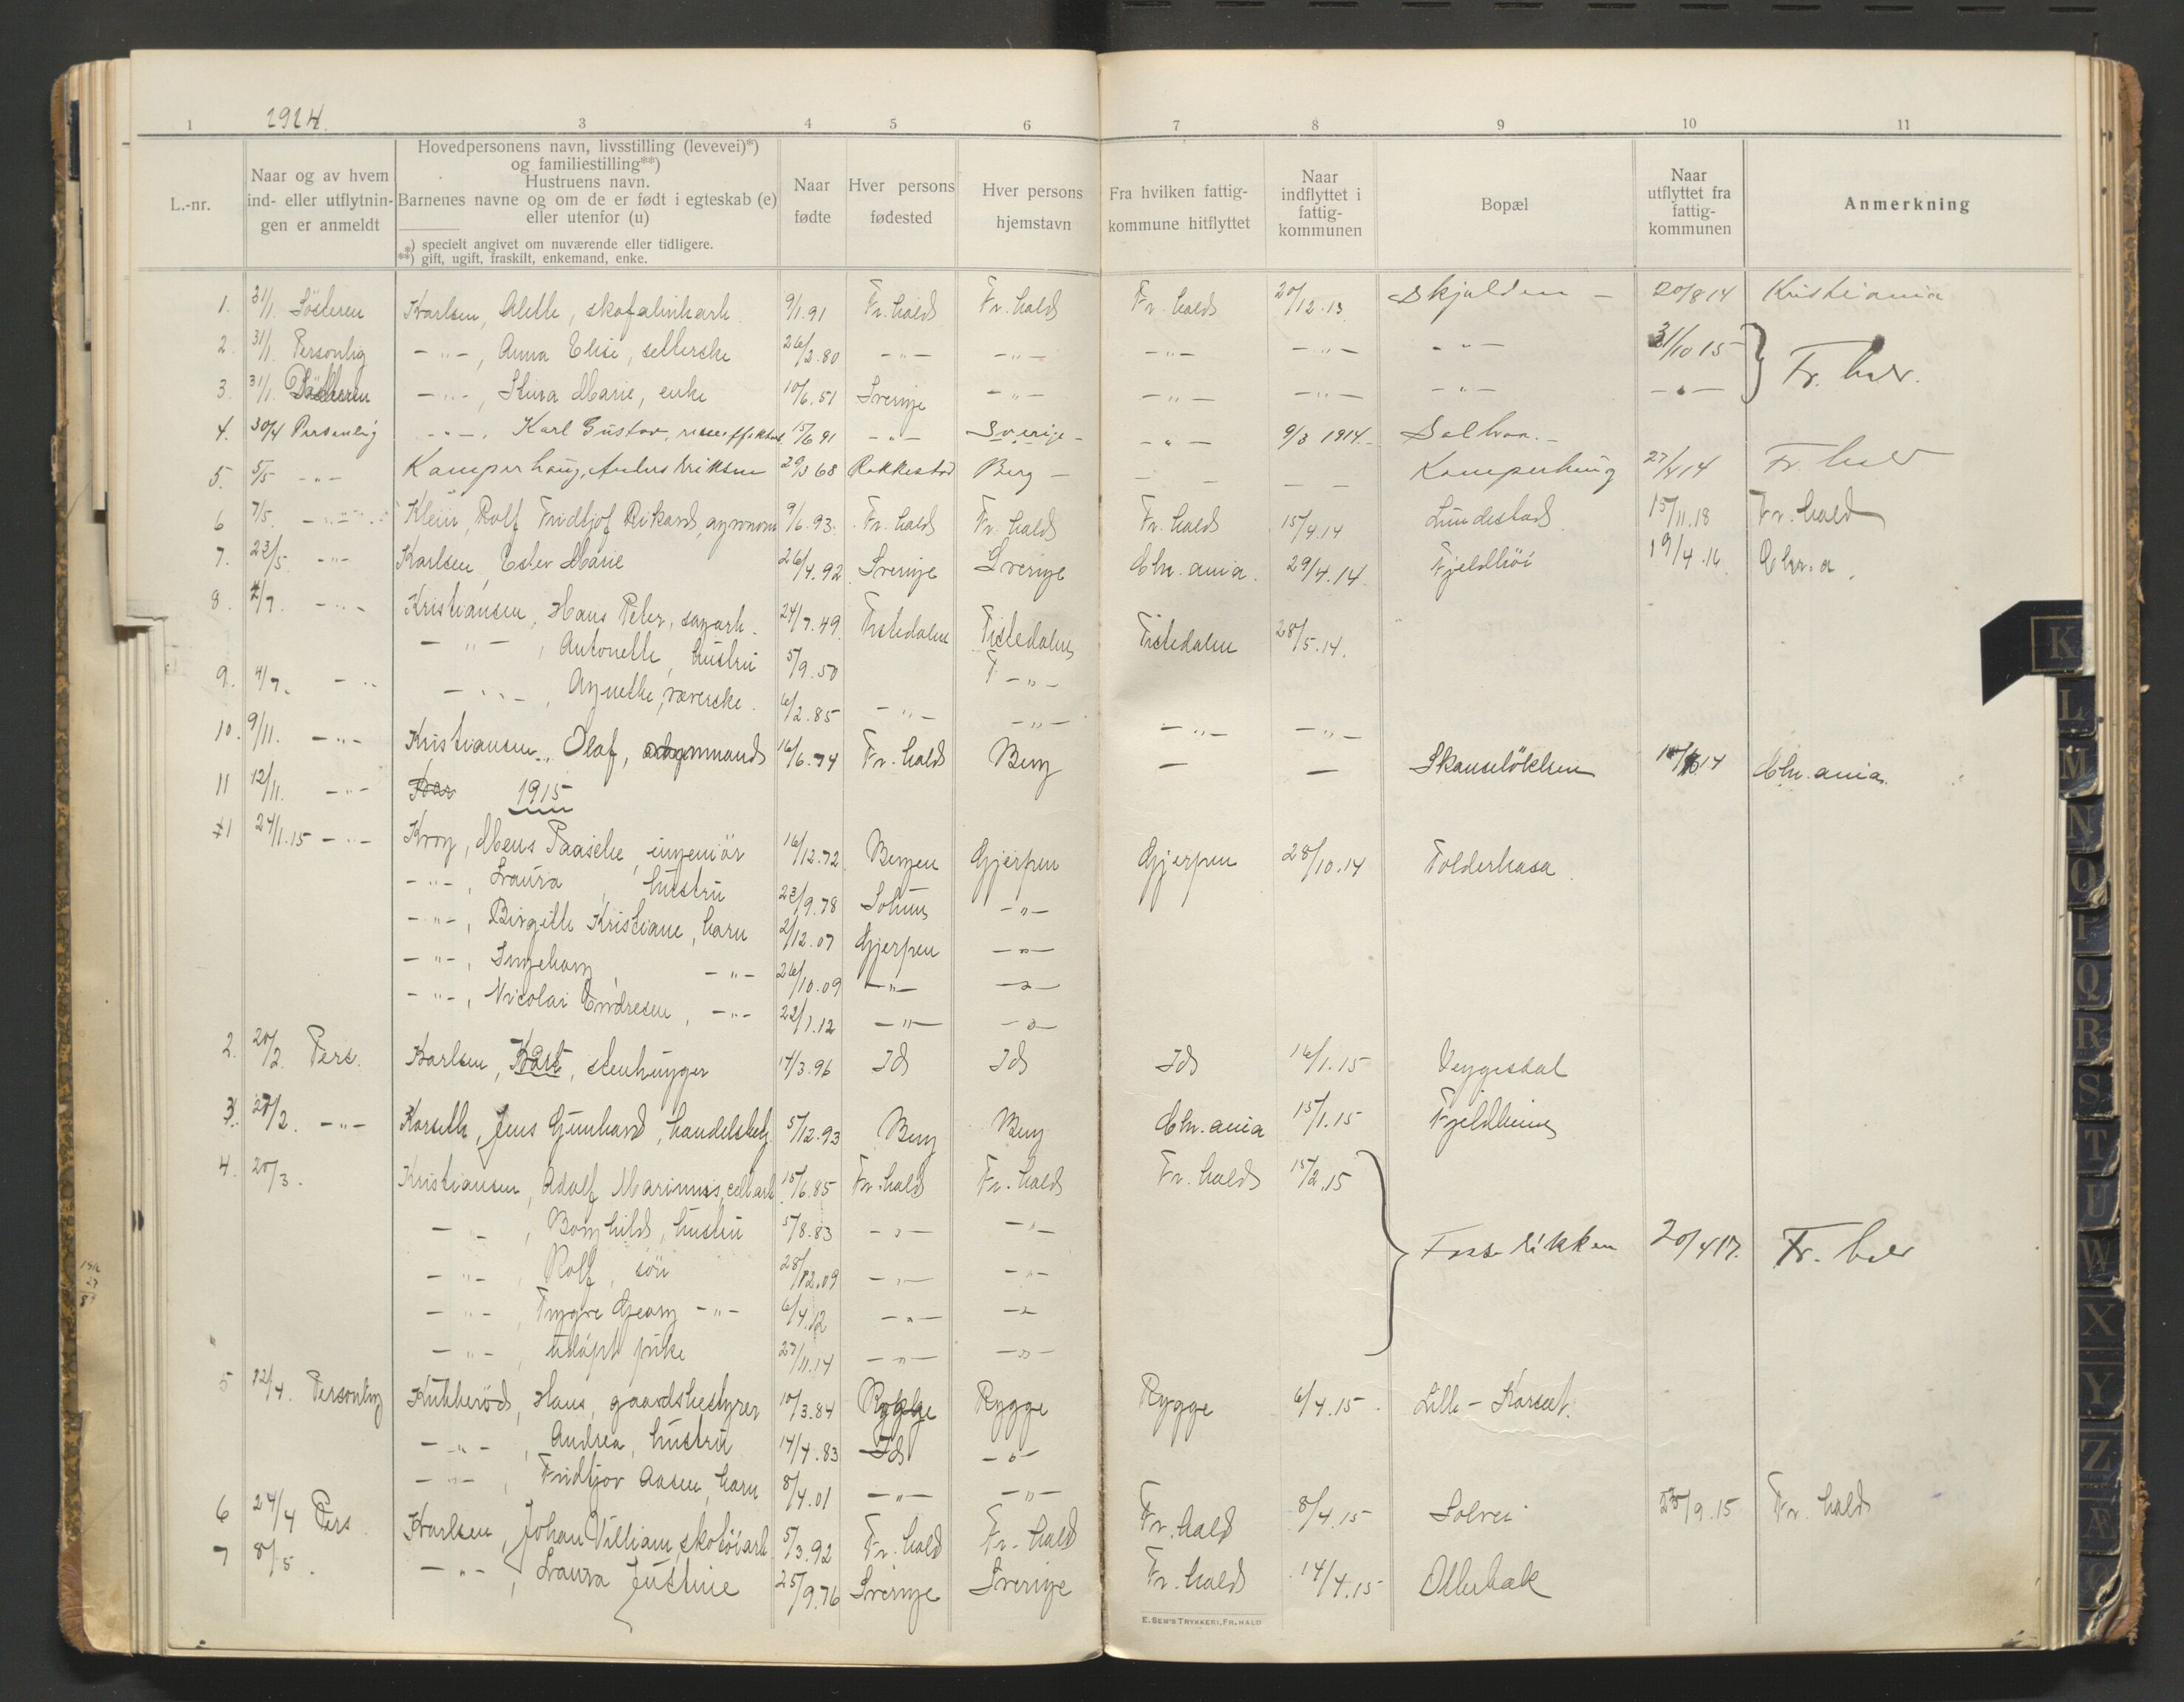 1914.
1 3 4 5 6 7 8 9 10 11
L.-nr.
Naar og av hvem
ind- eller utflytnin-
gen er anmeldt
Hovedpersonens navn, livsstilling (levevei)*)
og familiestilling**)
Hustruens navn.
Barnenes navne og om de er født i egteskab (e)
eller utenfor (u)
*) specielt angivet om nuværende eller tidligere.
**) gift, ugift, fraskilt, enkemand, enke.
Naar
fødte
Hver persons
fødested
Hver persons
hjemstavn
Fra hvilken fattig-
kommune hitflyttet
Naar
indflyttet i
fattig-
kommunen
Bopæl
Naar
utflyttet fra
fattig-
kommunen
Anmerkning
1. 31/1. Søsteren Karlsen, Alette, skofabrikarb. 9/1.91 Fr.hald Fr.hald Fr.hald 20/12.13 Skjolden — 20/8 14 Kristiania
2. 31/1. Personlig —"—, Anna Elise, sellerske 26/2.80 —"— —"— —"— —"— —"— 31/10 15 } Fr. hald.
3. 31/1. —"—, Stina Marie, enke 10/6.51 Sverige —"— —"— —"— —"— —"—
4. 30/4 Personlig —"—, Karl Gustav, 15/6 91 —"— Sverige — —"— 9/3 1914. —
5. 5/5 —"— Kamperhaug, Anders Eriksen 29/3 68 Rakkestad Berg — — — — — Kamperhaug 27/4 14 Fr. hald
6 7/5. —"— Klein, Rolf Fridtjof Rikard, agronom 9/6.93. Fr.hald Fr.hald Fr.hald 15/4.14 Lundestad 15/11.18 Fr.hald
7. 23/5. —"— Karlsen, Ester Marie 26/4.92 Sverige Sverige Chr.ania. 29/4.14. Fjeldhøi 19/4.16 Chr.a.
8. 4/7. —"— Kristiansen, Hans Peter, sagarb. 24/7.49. Tistedalen Tistedalen Tistedalen 28/5.14.
—"—, Antonette, hustru 5/9.50 T —"—
9. 4/7. —"— —"—, Agnethe, væverske. 6/2.85 —"— —"— —"— —"—
10. 9/11. —"— Kristiansen, Olaf, 16/6.74 Fr.hald Berg — — Skanseløkken 14 Chr.ania.
11 12/11. —"— 1915
1 24/1.15 —"— Krog, Mens Paasche, ingeniør 16/12.72 Bergen Gjerpen Gjerpen 28/10.14 Tolderhasa.
—"—, Laura, hustru 23/9.78 Solum —"—
—"—, Birgitte Kristiane, barn 2/12.07 Gjerpen —"—
—"—, Ingeborg —"— 26/10.09 —"— —"—
—"—, Nicolai Endresen, —"— 22/1.12 —"— —"—
2. 20/2. Pers. Karlsen, Karl, stenhugger 17/3.96 Id Id Id 16/1.15 Veggestal
3. 27/2. —"— Korseth, Jens Gunhard, handelsbetj. 5/12.93 Berg Berg Chr.ania 15/1.15 Fjeldheim
4. 20/3. Kristiansen, Adolf Marinus, cell.arb. 15/6.85 Fr.hald Fr.hald Fr.hald 15/2.15 }
—"—, Borghild, hustru 5/8.83 —"— —"— Fosseløkken 20/4 17. Fr. hald
—"—, Rolf, søn 28/12.09 —"— —"—
—"—, Yngve Georg —"— 6/4.12 —"— —"—
—"—, udøpt pike 27/11.14 —"— —"—
5 12/4. Personlig Kukkerød, Hans, gaardsbestyrer 10/3.84 Rygge Rygge Rygge 6/4.15. Lille-Korset.
—"—, Andrea, hustru 14/4.83 Id —"—
—"—, Fridtjov Aasen, barn 8/4.01 —"— —"—
6 24/4 Pers. Karlsen, Johan Villiam, skotøiarb. 5/3.92 Fr.hald Fr.hald Fr.hald 8/4.15 Solvei 25/9.15 Fr.hald
7 8/5. —"—, Laura Justine 25/9.76 Sverige Sverige Fr.hald 14/4.15 Otterbæk
E. SEM'S TRYKKERI, FR.HALD
K
L
M
N
O
P
Q
R
S
T
U
W
X
Y
Z
Æ